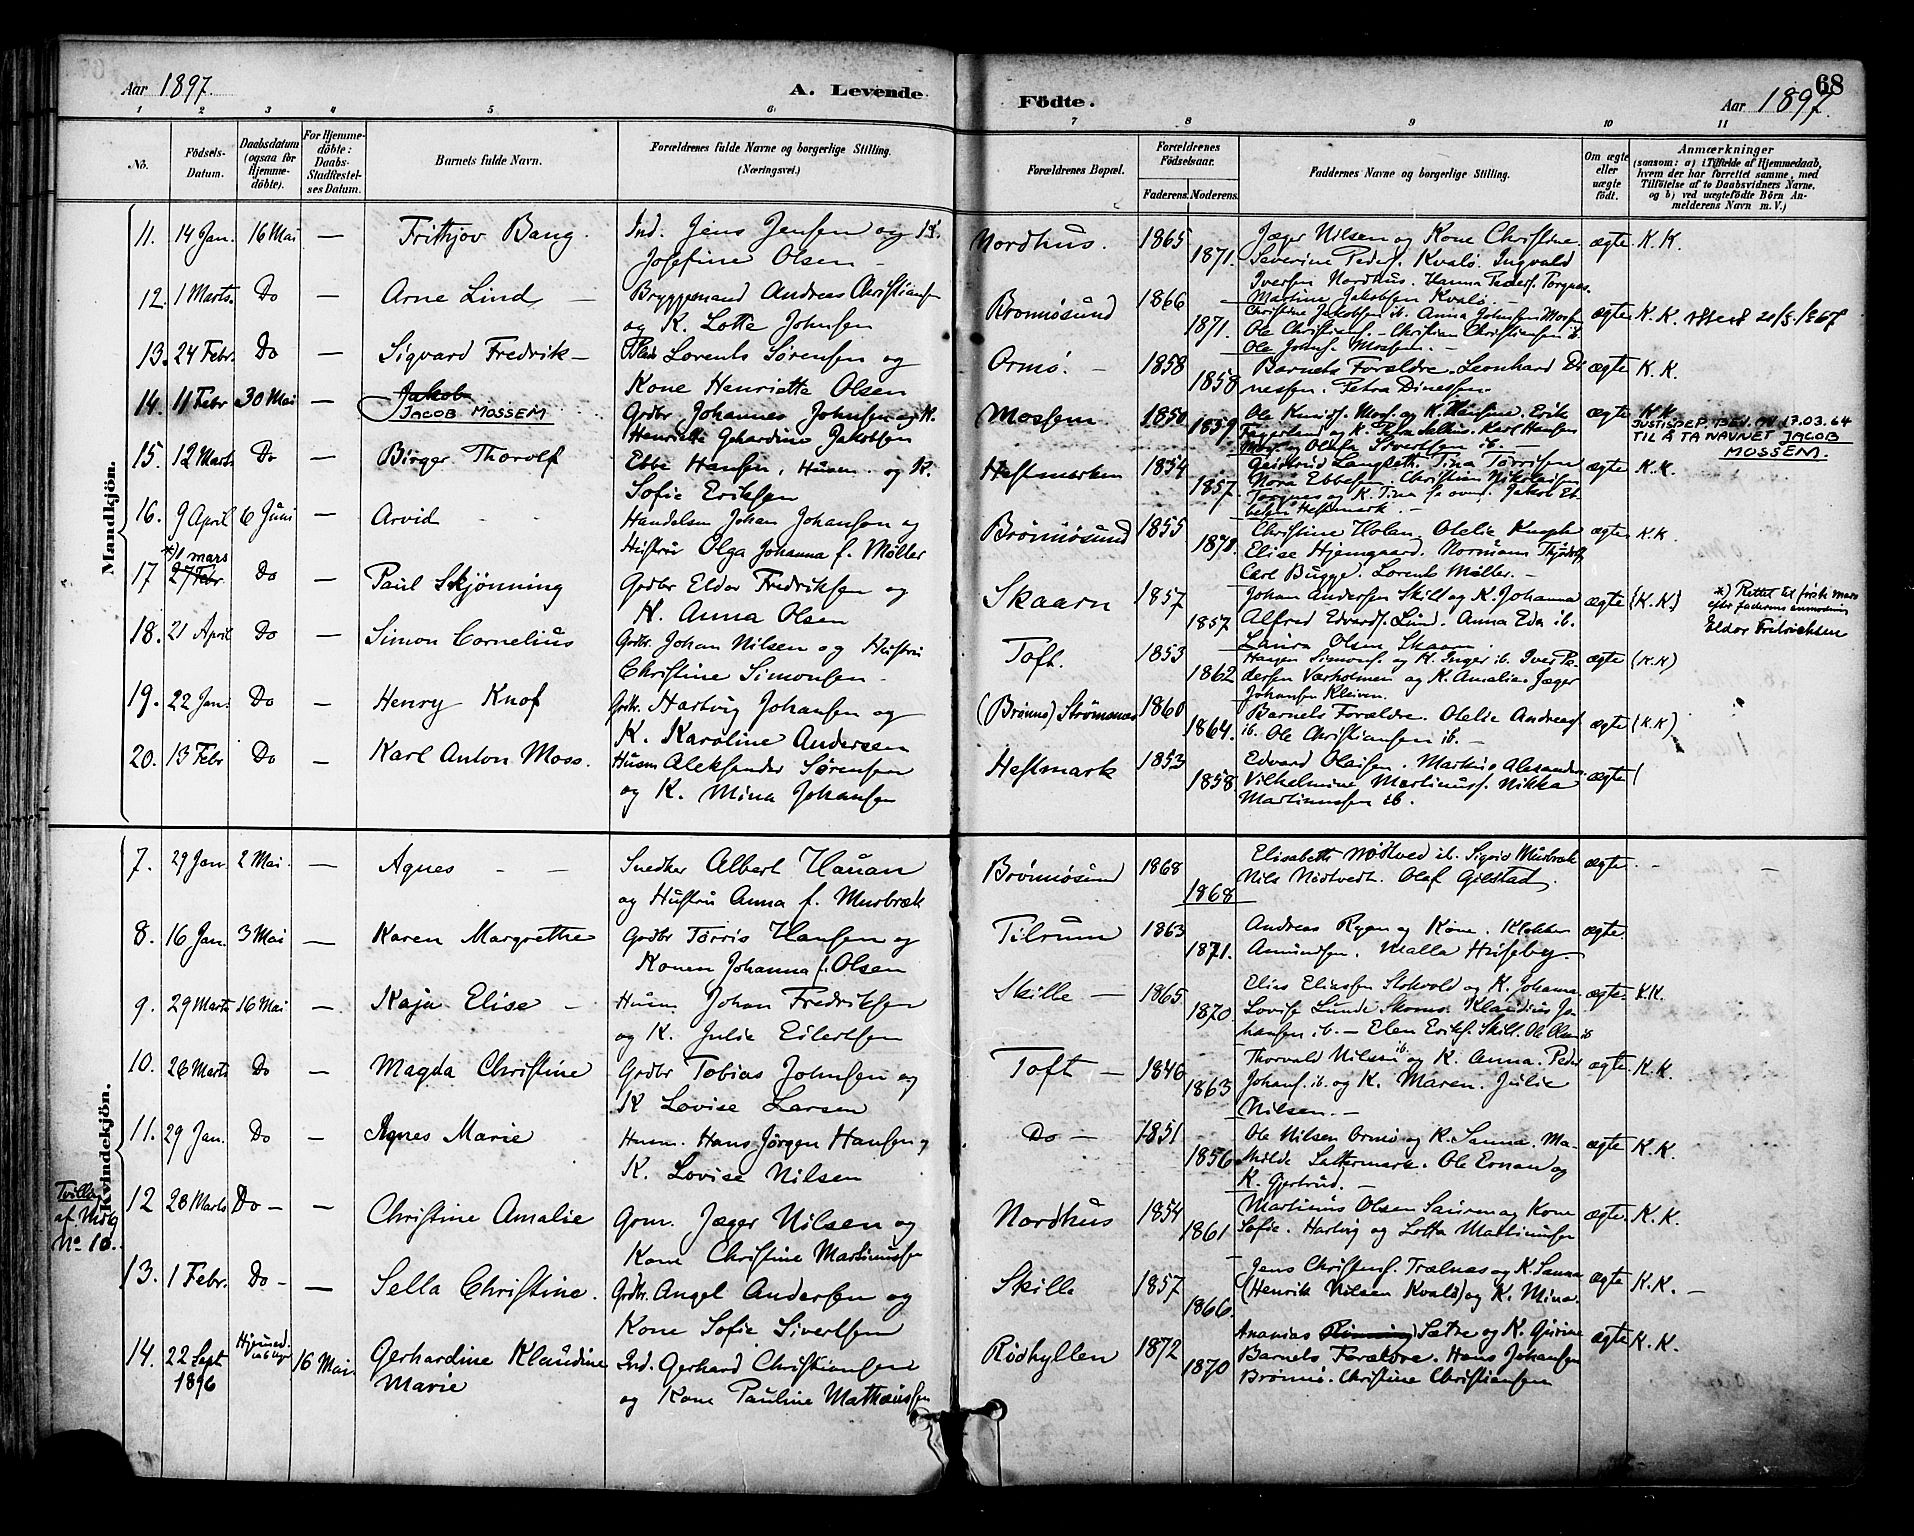 68
Aar 1897.
A. Levende
Fødte.
Aar 1897.
1 2 3 4 5 6 7 8 9 10 11
No.
Fødsels-Datum.
Daabsdatum (ogsaa for Hjemmedöbte).
For Hjemmedöbte: Daabs-Stadfestelses Datum.
Barnets fulde Navn.
Forældrenes fulde Navne og borgerlige Stilling. (Næringsvei.)
Forældrenes Bopæl.
Forældrenes Födselsaar.
Faderens. Moderens.
Faddernes Navne og borgerlige Stilling.
Om ægte eller uægte födt.
Anmærkninger (saasom: a) i Tilfælde af Hjemmedaab, hvem der har forrettet samme, med Tilföielse af to Daabsvidners Navne, og b) ved uægtefödte Börn Anmelderens Navn m. V.)
Mandkjön.
11. 14 Jan. 16 Mai — Frithjov Bang. Ind. Jens Jensen og K. Josefine Olsen – Nordhus. 1865 1871. Jæger Nilsen og Kone Christine. Severine Peders. Kvalø. Ingvald Iversen Nordhus. Hanna Peders. Torgnes. Martine Jakobsen Kvalø. ægte K.K.
12. 1 Marts. Do — Arne Lind — Bryggemand Andreas Christiansen og K. Lotte Johnsen Brønnøsund 1866 1871. Christine Jakobsen ib. Anna Johnsen Mosem Ole Christians. – Christian Christiansen ib. Ole Johns. Mossem. – ægte K.K. 20/5 1967
13. 24 Febr. Do — Sigvard Fredrik – Lorents Sørensen og Kone Henriette Olsen Ormø. – 1858 1858 Barnets Forældre. Leonhard Dinessen. Petra Dinessen. ægte K.K.
14. 11 Febr 30 Mai — Jakob JACOB MOSSEM Grdbr Johannes Johnsen og K. Henriette Gehardine Jakobsen Mossem 1850 1859. Ole Knuds. Mos. og K. Hansine. Erik og K. Petra Karl Hansen og Olufa ib. – ægte K.K JUSTISDEP. BEV. AV 13.03.64 TIL Å TA NAVNET JACOB MOSSEM.
15. 12 Marts Do — Birger Thorolf Ebbe Hansen, Husm. og K. Sofie Eriksen Hestmarken 1854 1857. Langseth. Tina Torrisen Nora Ebbesen. Christian Nikolaisen Torgnes og K. Tina Jakob Ebbesen Hestmark. – ægte K.K.
16. 9 April 6 Juni — Arvid Handelsm Johan Johansen og Hustru Olga Johanna f. Møller Brønnøsund 1855 1871. Christine Holan. Otelie Knoph Elise Hjemgaard. Normann Carl Bugge. Lorents Møller. – ægte K.K
17 *) 1 mars 27 Febr Do — Paul Skjønning Grdbr Eldor Fredriksen og H. Anna Olsen Skaarn 1857 1857 Johan Andersen Skill og K. Johanna Alfred Edvards. Lund. Anna Eda ib. Laura Olsen Skaarn. ægte (K.K.) *) Rettet til første mars efter faderens anmodning Eldor Fridrichsen
18. 21 April Do — Simon Cornelius Grdbr. Johan Nilsen og Hustru Christine Simonsen – Toft. 1853 1862 Hagen Simons. og K. Inger ib. Iver Pedersen Værholmen og K. Amalia. Jæger Johansen Kleiven. ægte (K.K)
19. 22 Jan. Do — Henry Knof Grdbr. Hartvig Johansen og K. Karoline Andersen (Brønnø) Strømsnes 1860 1864. Barnets Forældre. Otelie Andreas. ib. Ole Christiansen ib. – ægte (K.K).
20. 13 Febr Do — Karl Anton Moss. Husm Aleksander Sørensen og K. Mina Johansen Hestmark 1853 1858 Edvard Olaisen. Vilhelmine Martinus. Nikka Martinussen ib. ægte (
Kvindekjön.
7. 29 Jan. 2 Mai. — Agnes – – Snedker Albert Hauan og Hustru Anna f. Murbræk Brønnøsund 1868 1868 Elisabeth Nødtved ib. Sigrid Murbræk Nils Nødtvedt. Olaf Gilstad. ægte. – –
8. 16 Jan. 3 Mai — Karen Margrethe Grdbr Tørris Hansen og Konen Johanna f. Olsen Tilrum 1863 1871. Andreas Ryan og Kone. Klokker Amundsen. Malla Huseby. – ægte.
9. 29 Marts 16 Mai — Kaja Elise – Husm Johan Fredriksen og K. Julie Eilertsen Skille – 1865 1870 Elias Eliassen Stokvold og K. Johanna. Lovise Lunde Klaudius Johansen ib. – Elen Eriks. Skill. Ole Olsen ib ægte. K.K.
10. 26 Marts Do — Magda Christine Grdbr Tobias Johnsen og K Lovise Larsen Toft – 1846 1863 Thorvald Nilsen ib. og K. Anna. Peder Johans. ib. og K. Maren. Julie Nilsen. – ægte. K.K.
11. 29 Jan. Do — Agnes Marie Husm. Hans Jørgen Hansen og K. Lovise Nilsen Do – 1851 1856 Ole Nilsen Ormø og K. Sanna. Matilde Sattermark. Ole Ernan og K. Gjertrud. – ægte K.K.
Tvilling af Mdkj No 10.
12 28 Marts Do – — Christine Amalie Grm. Jæger Nilsen og Kone Christine Martinussen Nordhus 1854 1861 Martinus Olsen Sauren og Kone Sofie. Hartvig og Lotta Martinussen ægte. K.K.
13. 1 Febr. Do – — Sella Christine. Grdbr. Angel Andersen og Kone Sofie Sivertsen Skille 1857 1866. Jens Christens. Trælnes og K. Sanna (Henrik Nilsen Kvalø) og K. Mina. ægte K.K. –
14. 22 Sept 1896 Hjemmed. 16 Mai Gerhardine Klaudine Marie Ind. Gerhard Christiansen og Kone Pauline Mathæussen Rødhyllen 1872 1870 Ananias Sætre og K. Gurine Barnets Forældre. Hans Johansen Brønnø. Christine Christiansen ægte K.K.